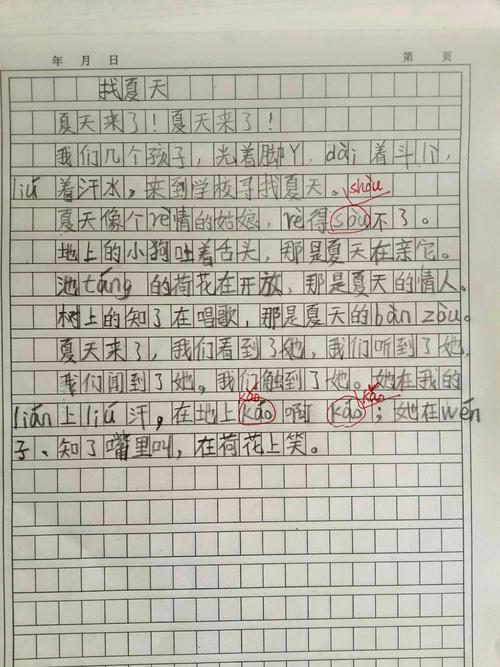 年 月 日 第 页
找夏天
夏天来了！夏天来了！
我们几个孩子，光着脚丫，dài着斗lì，
liú着汗水，来到学校寻找夏天。shòu
夏天像个rè情的姑娘，rè得sòu不了。
地上的小狗吐着舌头，那是夏天在亲它。
池táng的荷花在开放，那是夏天的情人。
树上的知了在唱歌，那是夏天的bàn zòu。
夏天来了，我们看到了她，我们听到了她，
我们闻到了她。我们触到了她。她在我的
kǎo kǎo
liǎn上liú汗，在地上káo啊káo；她在wén
子、知了嘴里叫，在荷花上笑。